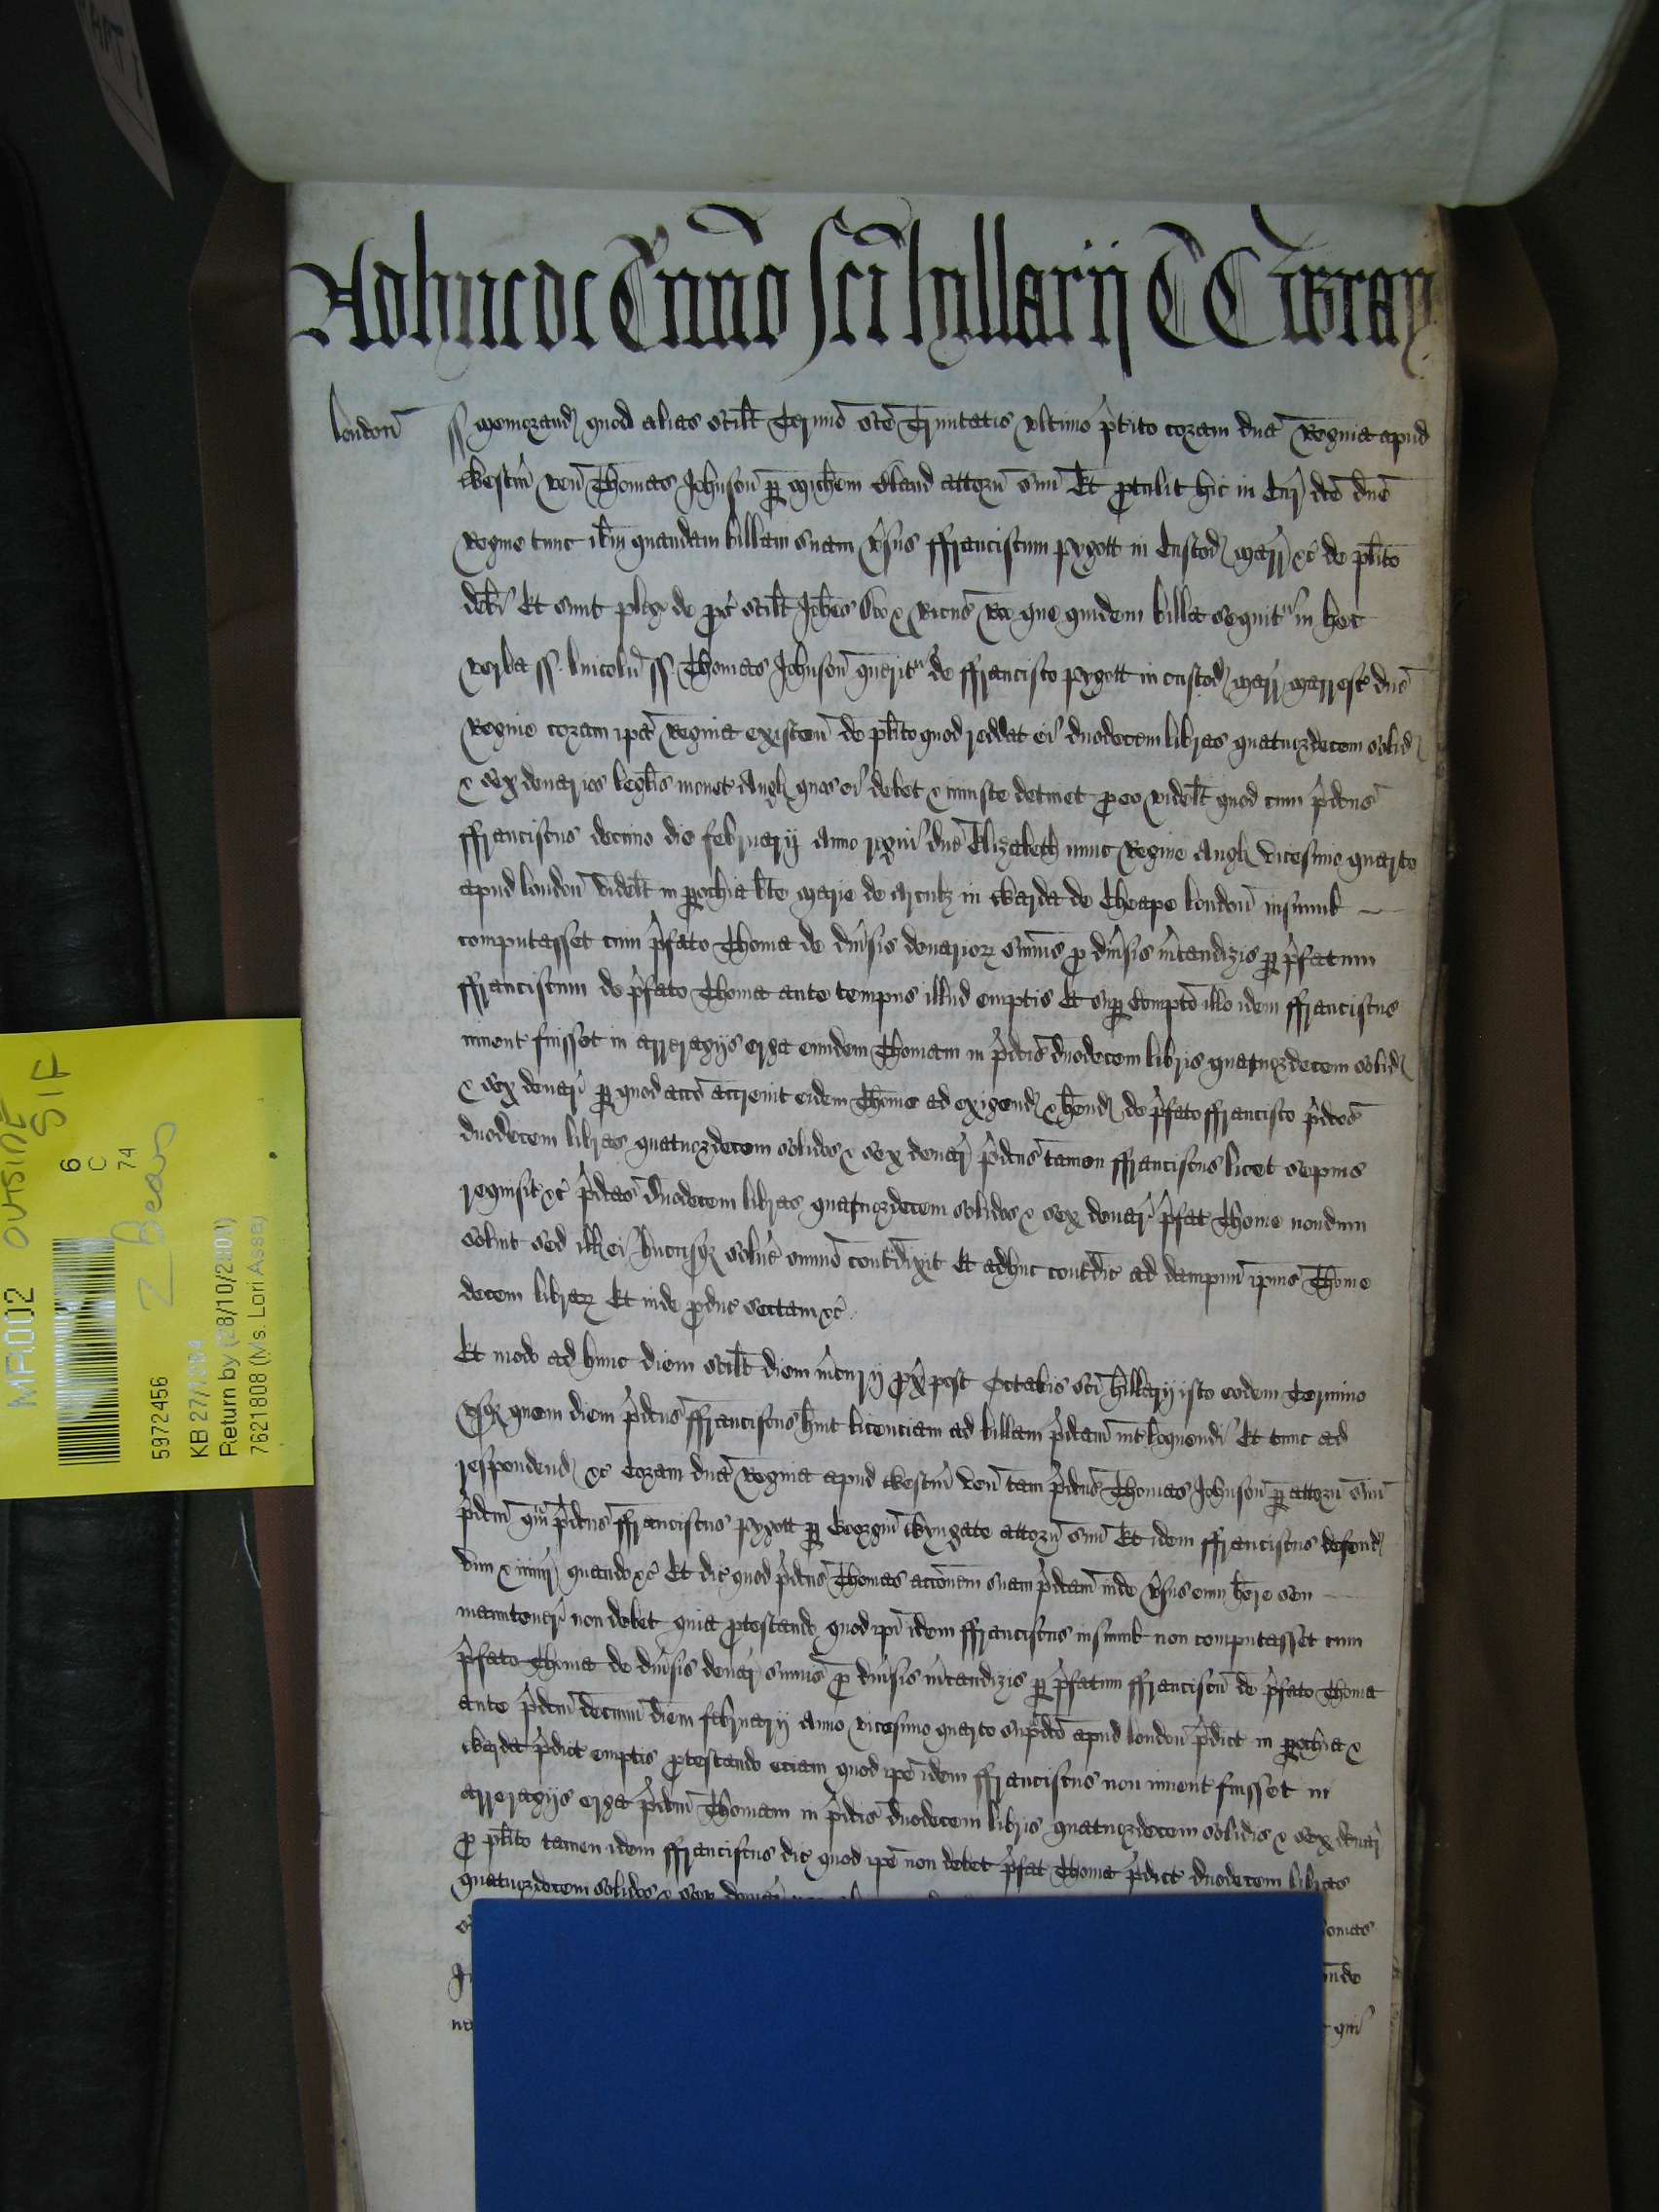 Adhuc de T̃mino Sci hillarij CC Wray
london̄ ss memorand qd quod alias scil̃t Termio sc̃e Trinitatis vltimo p̃terito coram dn̄a Regina apud
Westm̃ ven̄ Thomas Johnson p Mich̃em attorñ suū Et ptulit hic in Cur̃ dc̃e dn̄e
Regine tunc ib̃m quandam billam suam ṽsus ffranciscum pygott in Custod marr̃ &c̃ de pl̃ito
deb̃i Et sunt pleg̃ de p̃s scil̃t Joh̃es Doo & Ric̃us Roo que quidem billa sequitur in hec
verba ss london̄ ss Thomas Johnson queritur de ffrancisco pygott in custod marr̃ marresc̃ dn̄e
Regine coram ip̃a Regina existen̄ de pl̃ito quod reddat ei duodecem libras quatuordecem solid
& sex denarios legal̃is monet̃ Angl̃ quos ei debet & iniuste detinet p eo videl̃t quod cum p̃dc̃us
ffranciscus decimo die februarij Anno regni dn̄e Elizabeth nunc Regine Angl̃ vicesimo quarto
apud london̄ videl̃t in parochia b̃te Marie de Arcubȝ in Warda de Cheape london̄ insimul
computasset cum p̃fato Thoma de div̄sis denarior̃ summis p div̄sis m̃candizis p p̃fatum
ffranciscum de p̃fato Thoma ante tempus illud emptis Et sup Compt̄o illo idem ffranciscus
invent̃ fuisset in arreragijs erga eundem Thomam in p̃dc̃is duodecem libris quatuordecem solid
& sex denar̃ p quod acc̃o accreuit eidem Thome ad exigend & h̃end de p̃fato ffrancisco p̃dc̃as
duodecem libras quatuordecem solidos & sex denar̃ p̃dc̃us tamen ffranciscus licet sepius
requisit̃ &c̃ p̃dc̃as duodecem libras quatuordecem solidos & sex denar̃ p̃fat̃ Thome nondum
soluit sed ill̃ ei hucusqȝ soluẽ omĩno contradixit Et adhuc contradic̃ ad dampnū ip̃ius Thome
decem librar̃ Et inde pduc̃ sectam &c̃
Et modo ad hunc diem scil̃t diem m̃curij px̃ post Octabis sc̃i hillarij isto eodem Termino
vsqȝ quem diem p̃dc̃us ffranciscus h̃uit licenciam ad billam p̃dc̃am int̃loquendi Et tunc ad
respondend &c̃ Coram dn̄a Regina apud Westm̃ ven̄ tam p̃dc̃us Thomas Johnson p attorñ suū
p̃dc̃m qm̃ p̃dc̃us ffranciscus pygott p Georgiū Kyngate attorñ suū Et idem ffranciscus defend
vim & iniur̃ quando &c̃ Et dic̃ quod p̃dc̃us Thomas acc̃onem suam p̃dc̃am inde ṽsus eum h̃ere seu
manutener̃ non debet quia ptestando quod ip̃e idem ffranciscus insimul non computasset cum
p̃fato Thoma de div̄sis denar̃ summis p div̄sis m̃candizis p p̃fatum ffranciscū de p̃fato Thoma
ante p̃dc̃m decimū diem februarij Anno vicesimo quarto sup̃dc̃o apud london̄ p̃dict̃ in parochia &
Warda p̃dict̃ emptis ptestando eciam quod ip̃e idem ffranciscus non invent̃ fuisset in
arreragijs erga p̃dc̃m Thomam in p̃dc̃is duodecem libris quatuordecem solidis & sex denar̃
p pl̃ito tamen idem ffranciscus dic̃ quod ip̃e non debet p̃fat̃ Thome p̃dict̃ duodecem libras
quatuordecem solidos & sex denar̃
MR002
OUTSIZE
SIF
6
C
74
Z Bears
5972456
KB 27/1304
Return by (28/10/2009)
7621808 (Ms. Lori Assa)